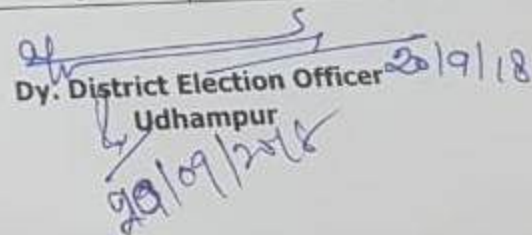 Dy. District Election Officer 20/9/18
Udhampur
20/09/2018